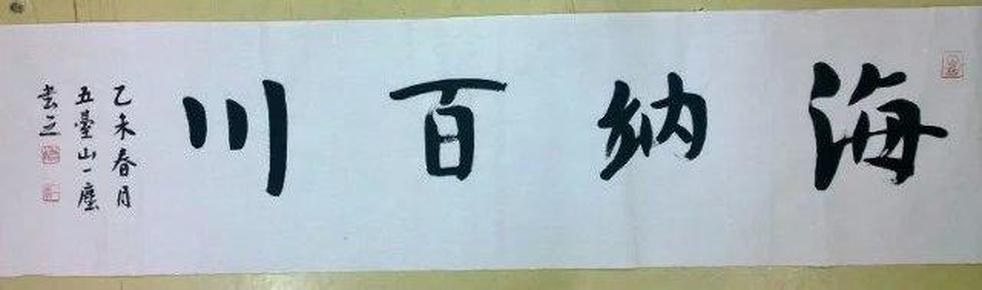 海納百川
乙未春月
五臺山一塵
书之